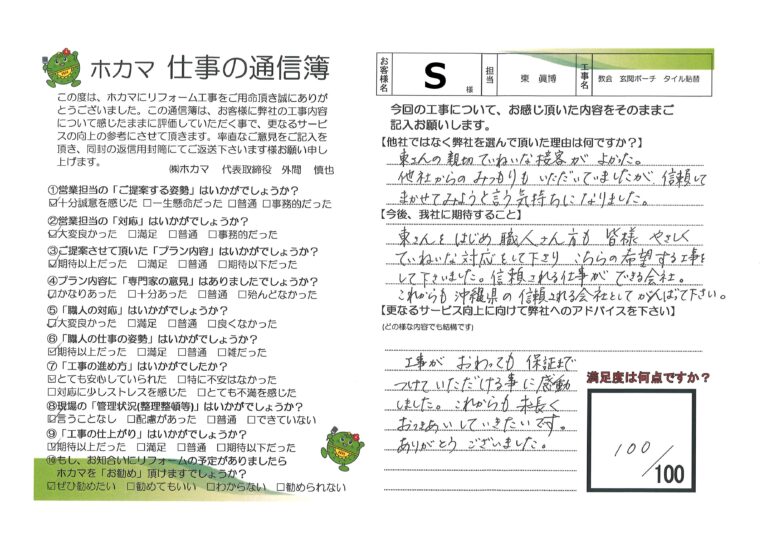 ホカマ 仕事の通信簿
この度は、ホカマにリフォーム工事をご用命頂き誠にありが
とうございました。この通信簿は、お客様に弊社の工事内容
について感じたままに評価していただく事で、更なるサービ
スの向上の参考にさせて頂きます。率直なご意見をご記入を
頂き、同封の返信用封筒にてご返送下さいます様お願い申し
上げます。
㈱ホカマ 代表取締役 外間 慎也
①営業担当の「ご提案する姿勢」はいかがでしょうか?
☑十分誠意を感じた □一生懸命だった □普通 □事務的だった
②営業担当の「対応」はいかがでしょうか?
☑大変良かった □満足 □普通 □事務的だった
③ご提案させて頂いた「プラン内容」はいかがでしょうか?
☑期待以上だった □満足 □普通 □期待以下だった
④プラン内容に「専門家の意見」はありましたでしょうか?
☑かなりあった □十分あった □普通 □殆んどなかった
⑤「職人の対応」はいかがでしょうか?
☑大変良かった □満足 □普通 □良くなかった
⑥「職人の仕事の姿勢」はいかがでしょうか?
☑期待以上だった □満足 □普通 □雑だった
⑦「工事の進め方」はいかがでしたか?
☑とても安心していられた □特に不安はなかった
□対応に少しストレスを感じた □とても不満を感じた
⑧現場の「管理状況(整理整頓等)」はいかがでしょうか?
☑言うことなし □配慮があった □普通 □できていない
⑨「工事の仕上がり」はいかがでしょうか?
☑期待以上だった □満足 □普通 □期待以下だった
⑩もし、お知合いにリフォームの予定がありましたら
ホカマを「お勧め」頂けますでしょうか?
☑ぜひ勧めたい □勧めてもいい □わからない □勧められない
お客様名 S 様 担当 東 眞博 工事名 教会 玄関ポーチ タイル貼替
今回の工事について、お感じ頂いた内容をそのままご
記入お願いします。
【他社ではなく弊社を選んで頂いた理由は何ですか?】
東さんの親切ていねいな接客が よかった。
他社からのみつもりも いただいていましたが、信頼して
まかせてみようと言う気持ちになりました。
【今後、我社に期待すること】
東さんをはじめ 職人さん方も 皆様 やさしく
ていねいな対応をして下さり こちらの希望する工事を
して下さいました。信頼される仕事ができる会社。
これからも 沖縄県の信頼される会社としてがんばて下さい。
【更なるサービス向上に向けて弊社へのアドバイスを下さい】
(どの様な内容でも結構です)
工事が おわっても 保証まで
つけていただける事に感動
しました。これからも 末長く
おつきあいしていきたいです。
ありがとう ございました。
満足度は何点ですか?
100/100